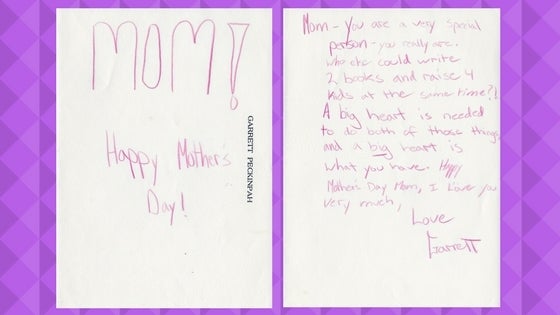 MOM!
Happy Mother's
Day!
GARRETT PECKINPAH
Mom - you are a very special
person - you really are.
who else could write
2 books and raise 4
kids at the same time?!
A big heart is needed
to do both of those things
and a big heart is
what you have. Happy
Mother's Day Mom, I Love you
very much,
Love
Garrett